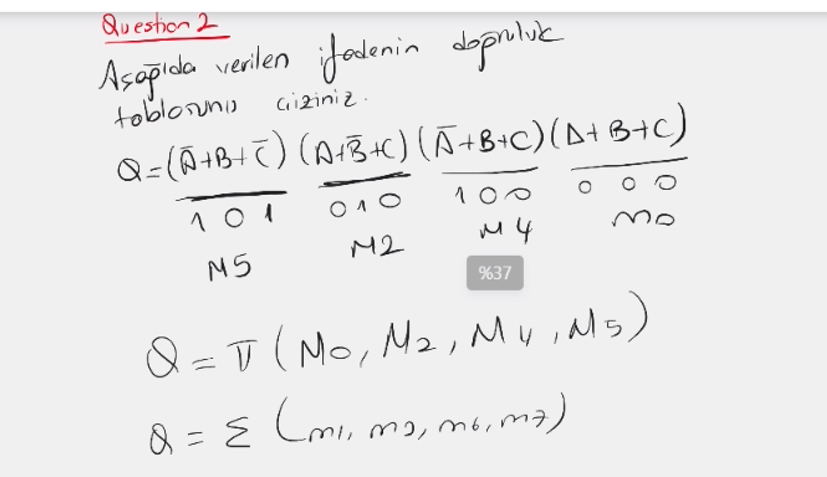 Question 2
Aşağıda verilen ifadenin doğruluk
tablosunu çiziniz.
Q=(Ā+B+C̄)(A+B̄+C)(Ā+B+C)(A+B+C)
1 0 1 0 1 0 1 0 0 0 0 0
M5 M2 M4 M0
%37
Q = π(M0, M2, M4, M5)
Q = Σ(m1, m3, m6, m7)